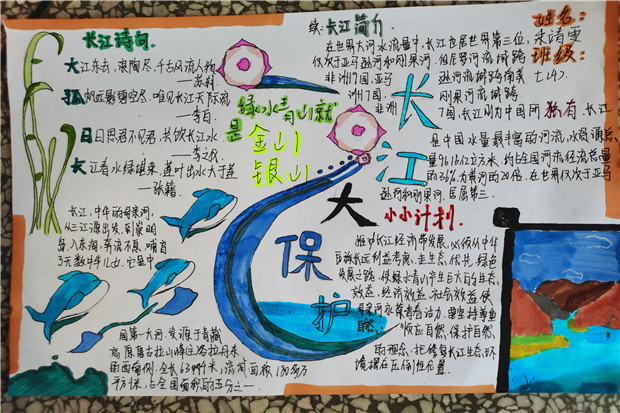 长江诗词.
大江东去,浪淘尽,千古风流人物
——苏轼
孤帆远影碧空尽.唯见长江天际流
——李白
日日思君不见君.共饮长江水
——李之仪
长江春水绿堪染.莲叶出水大于
——张籍
长江,中华的母亲河,
从三江源出发,到崇明
岛入东海,奔流不息.哺育
了无数中华儿女.它是中
国第一大河.发源于青藏
高原唐古拉山峰各拉丹冬
西南侧,全长6397千米,流域面积180多万
平方千米,占全国面积的五分之一.
绿水青山就
是金山
银山
长江大保护
续:长江简介
在世界大河水流量中,长江也居世界第三位,
仅次于亚马逊河和刚果河.
独有
长江
是中国水量最丰富的河流,水资源总
量9616亿立方米,约占全国河流径流总量
的36%,为黄河的20倍.在世界仅次于亚马
逊河和刚果河,居第三.
姓名:
朱清雯
班级:
七(4).
小小计划.
推动长江经济带发展,必须从中华
民族长远利益考虑,走生态、优先、绿色
发展之路,使绿水青山产生巨大的生态、
效益、经济效益、社会效益,使
母亲河永葆青春活力.要坚持尊重
自然、顺应自然,保护自然
的理念,把修复长江生态环
境摆在压倒性位置.